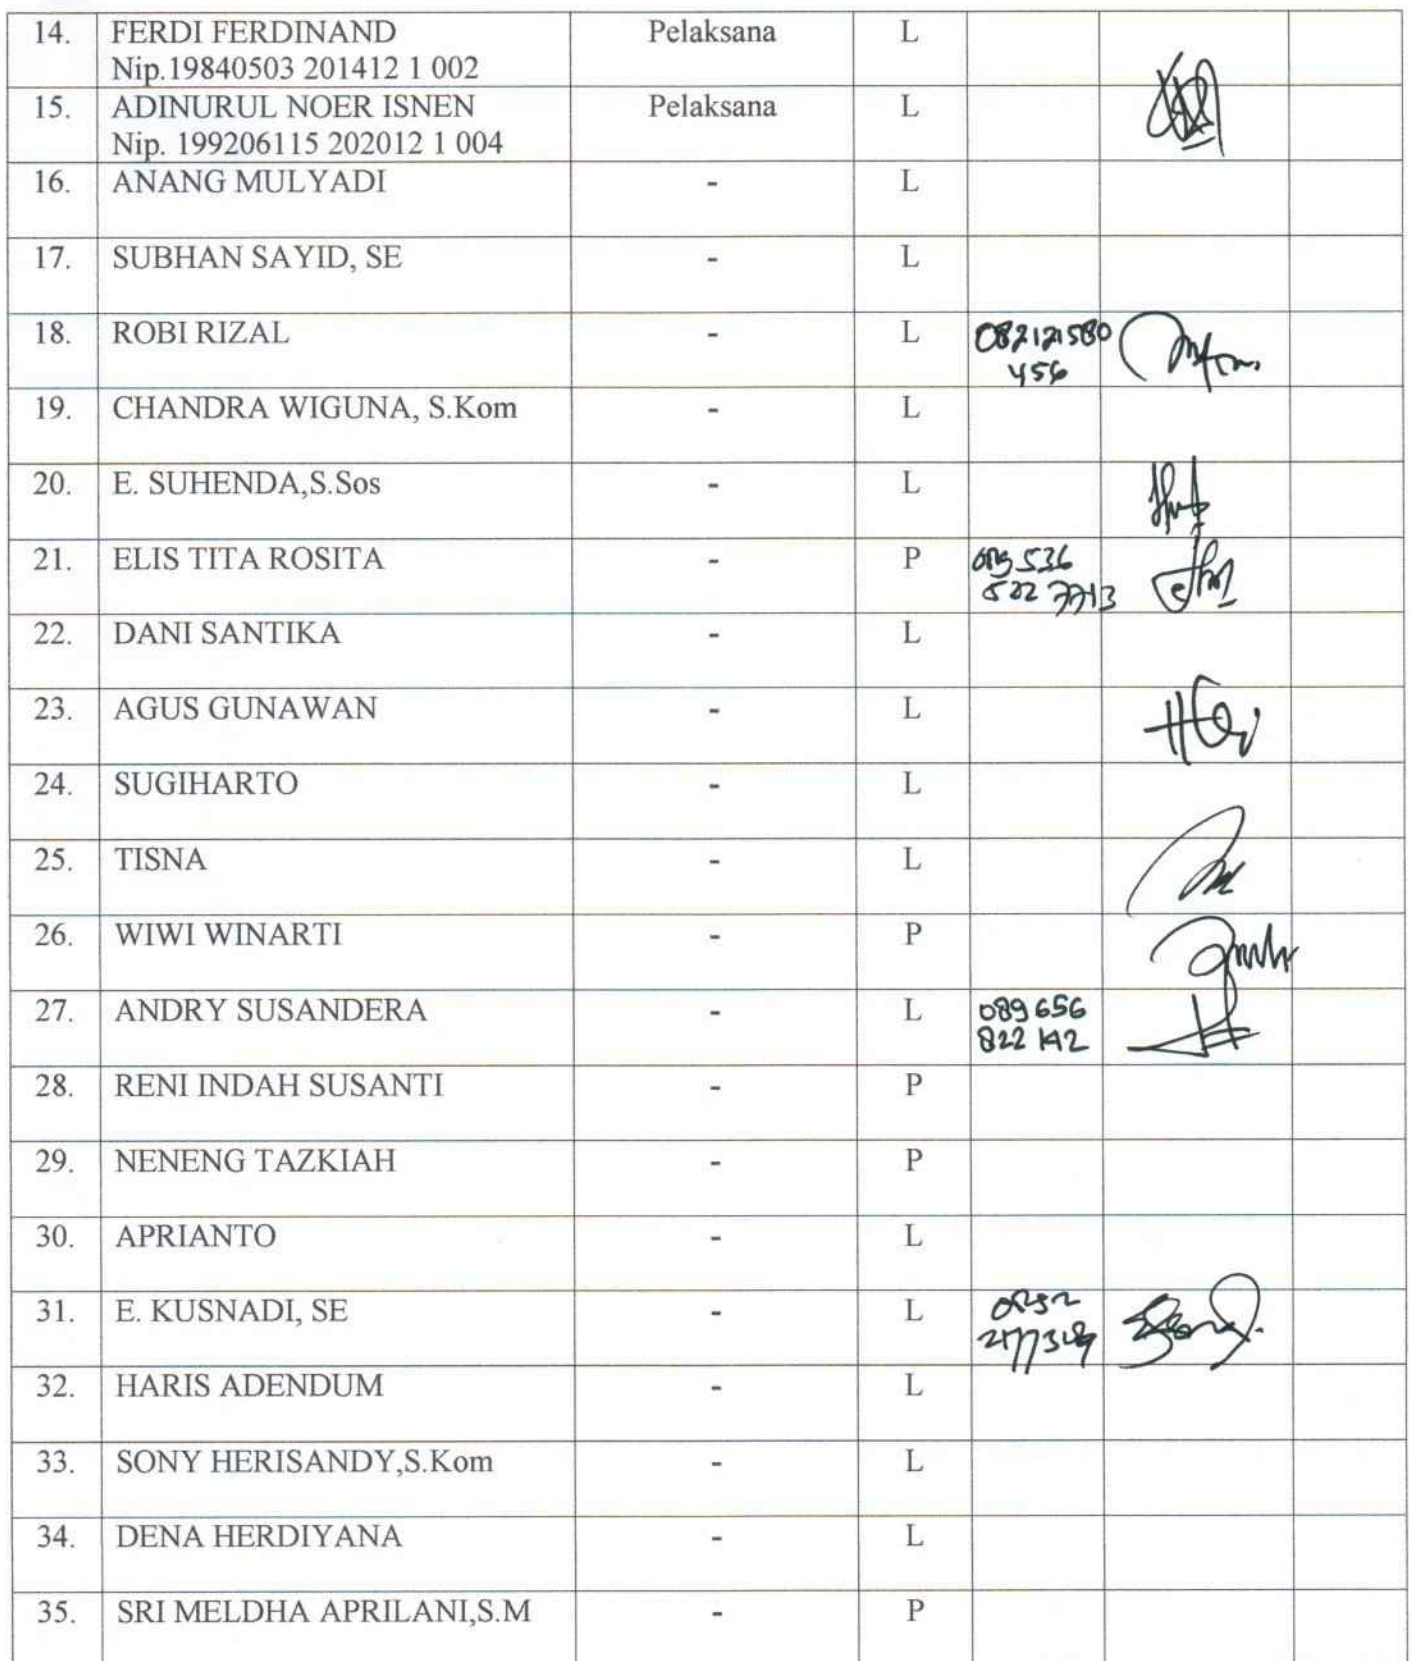 14. FERDI FERDINAND Pelaksana L
Nip.19840503 201412 1 002
15. ADINURUL NOER ISNEN Pelaksana L
Nip. 199206115 202012 1 004
16. ANANG MULYADI - L
17. SUBHAN SAYID, SE - L
18. ROBI RIZAL - L 082121580
456
19. CHANDRA WIGUNA, S.Kom - L
20. E. SUHENDA,S.Sos - L
21. ELIS TITA ROSITA - P 536
522 7713
22. DANI SANTIKA - L
23. AGUS GUNAWAN - L
24. SUGIHARTO - L
25. TISNA - L
26. WIWI WINARTI - P
27. ANDRY SUSANDERA - L 089656
822 142
28. RENI INDAH SUSANTI - P
29. NENENG TAZKIAH - P
30. APRIANTO - L
31. E. KUSNADI, SE - L
32. HARIS ADENDUM - L
33. SONY HERISANDY,S.Kom - L
34. DENA HERDIYANA - L
35. SRI MELDHA APRILANI,S.M - P